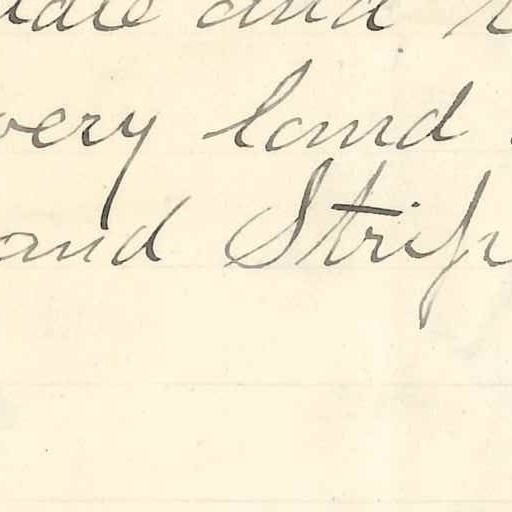 and
very land
and Strip